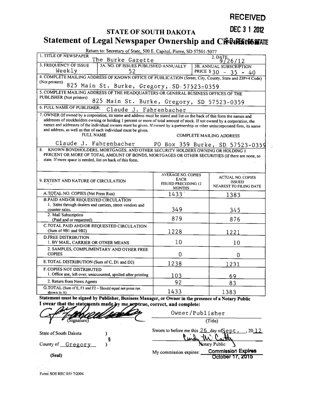 RECEIVED
DEC 31 2012
STATE OF SOUTH DAKOTA
Statement of Legal Newspaper Ownership and
Return to: Secretary of State, 500 E. Capitol, Pierre, SD 57501-5077
1. TITLE OF NEWSPAPER
The Burke Gazette
2. DATE
9/26/12
3. FREQUENCY OF ISSUE
Weekly
3A. NO. OF ISSUES PUBLISHED ANNUALLY
52
3B. ANNUAL SUBSCRIPTION
PRICE $30 - 35 - 40
4. COMPLETE MAILING ADDRESS OF KNOWN OFFICE OF PUBLICATION (Street, City, County, State and ZIP+4 Code)
(Not printers)
825 Main St. Burke, Gregory, SD 57523-0359
5. COMPLETE MAILING ADDRESS OF THE HEADQUARTERS OR GENERAL BUSINESS OFFICES OF THE
PUBLISHER (Not printers)
825 Main St. Burke, Gregory, SD 57523-0359
6. FULL NAME OF PUBLISHER
Claude J. Fahrenbacher
7. OWNER (If owned by a corporation, its name and address must be stated and list on the back of this form the names and
addresses of stockholders owning or holding 1 percent or more of total amount of stock. If not owned by a corporation, the
names and addresses of the individual owners must be given. If owned by a partnership or other unincorporated firm, its name
and address, as well as that of each individual must be given.
FULL NAME COMPLETE MAILING ADDRESS
Claude J. Fahrenbacher PO Box 359 Burke, SD 57523-0359
8. KNOWN BONDHOLDERS, MORTGAGES, AND OTHER SECURITY HOLDERS OWNING OR HOLDING 1
PERCENT OR MORE OF TOTAL AMOUNT OF BONDS, MORTGAGES OR OTHER SECURITIES (If there are none, so
state. If more space is needed, list on back of this form.
9. EXTENT AND NATURE OF CIRCULATION
AVERAGE NO. COPIES
EACH
ISSUED PRECEDING 12
MONTHS
ACTUAL NO. COPIES
ISSUED
NEAREST TO FILING DATE
A. TOTAL NO. COPIES (Net Press Run) 1433 1383
B. PAID AND/OR REQUESTED CIRCULATION
1. Sales through dealers and carriers, street vendors and
counter sales. 349 345
2. Mail Subscription
(Paid and or requested) 879 876
C. TOTAL PAID AND/OR REQUESTED CIRCULATION
(Sum of 9B1 and 9B2) 1228 1221
D. FREE DISTRIBUTION
1. BY MAIL, CARRIER OR OTHER MEANS 10 10
2. SAMPLES, COMPLIMENTARY AND OTHER FREE
COPIES 0 0
E. TOTAL DISTRIBUTION (Sum of C, D1 and D2) 1238 1231
F. COPIES NOT DISTRIBUTED
1. Office use, left over, unaccounted, spoiled after printing 103 69
2. Return from News Agents 92 83
G. TOTAL (Sum of E, F1 and F2 - Should equal net press run
shown in A) 1433 1383
Statement must be signed by Publisher, Business Manager, or Owner in the presence of a Notary Public
I swear that the statements made by me are true, correct, and complete:
Owner/Publisher
(Signature) (Title)
State of South Dakota )
§
County of Gregory )
Sworn to before me this 26 day of Sept., 2012
Notary Public
(Seal)
My commission expires: Commission Expires
October 17, 2015